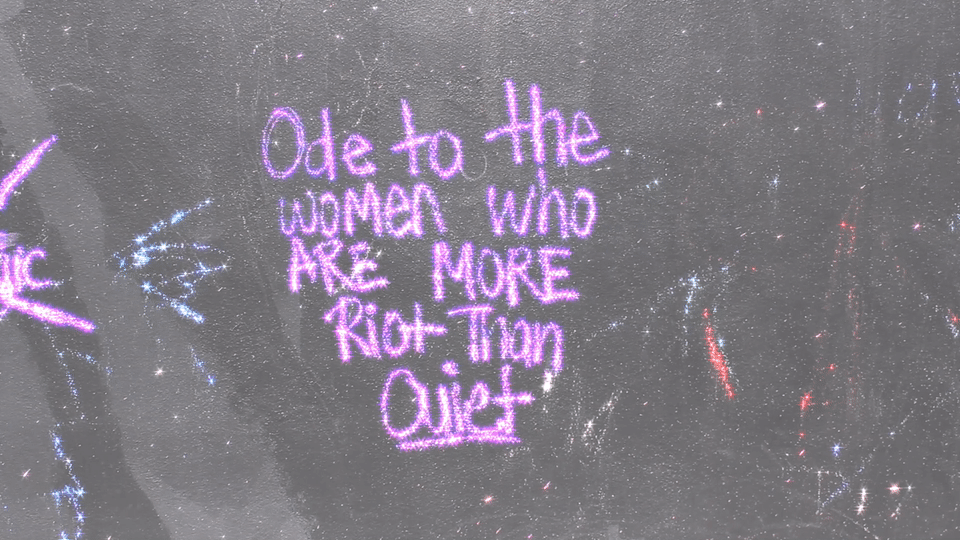 Ode to the
women who
ARE MORE
Riot Than
Quiet